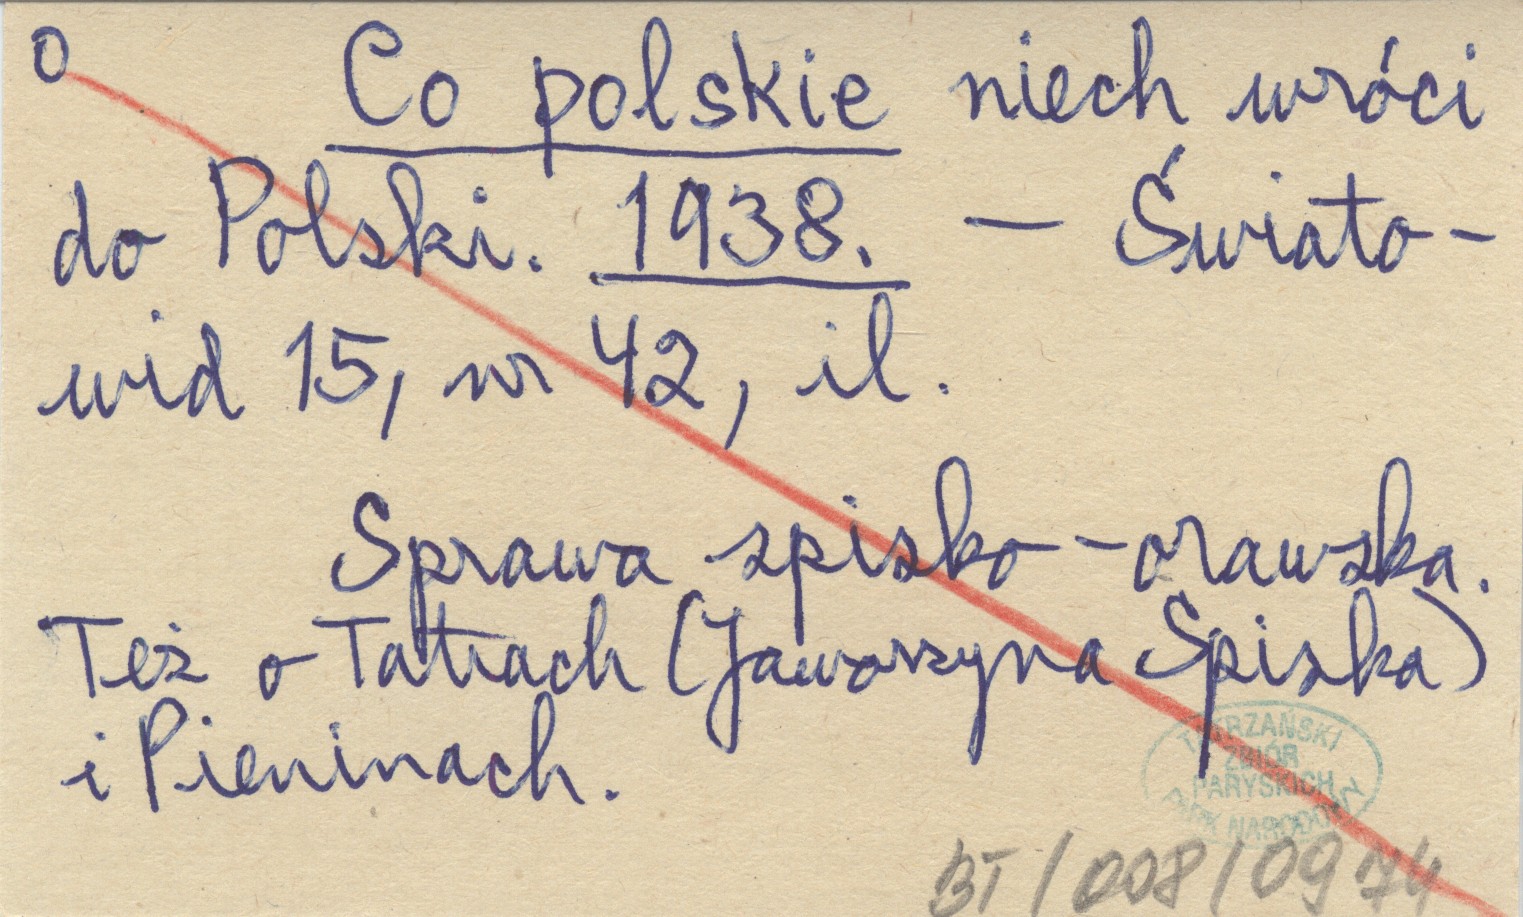 O Co polskie niech wróci
do Polski. 1938. — Świato-
wid 15, nr 42, il.
Sprawa spisko-orawska.
Też o Tatrach (Jaworzyna Spiska)
i Pieninach.
TATRZAŃSKI
ZBIÓR
PARYSKICH
PARK NARODOWY
BT/008/0974